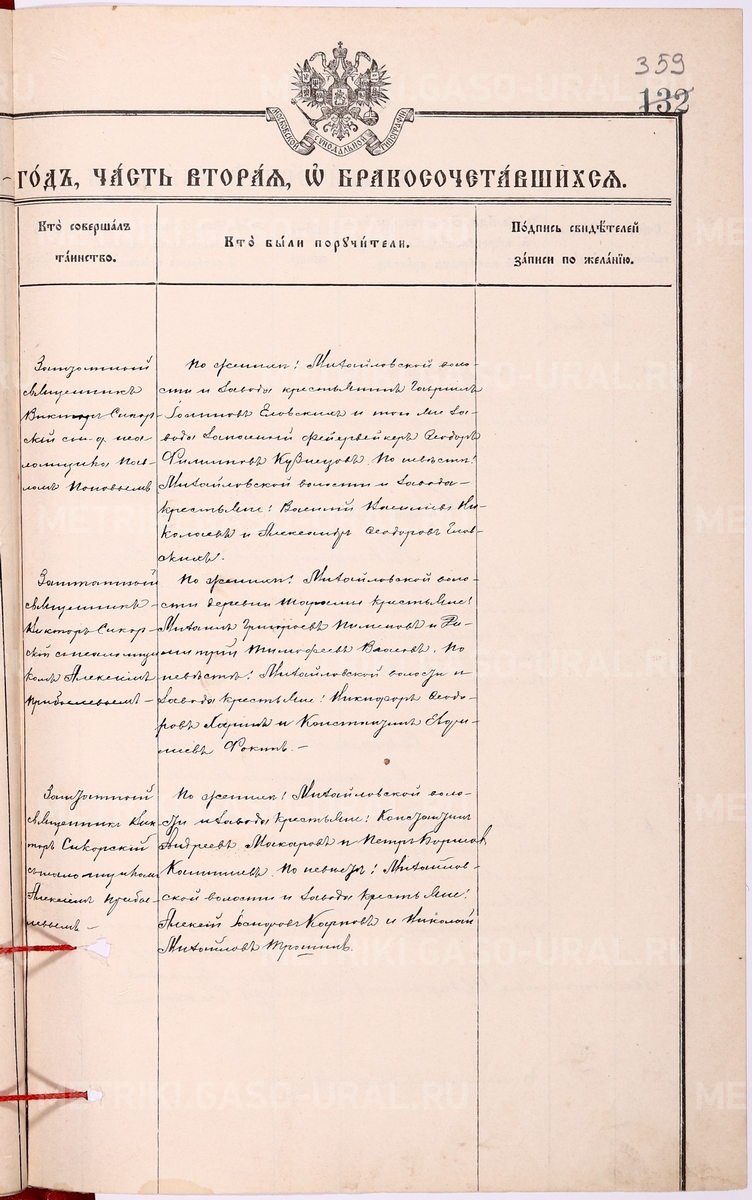 359
132
МОСКОВСКОЙ СѴНОДАЛЬНОЙ ТИПОГРАФІИ
го́дъ, ча́сть втора́я, ѡ҆ бракосочета́вшихсѧ.
Кто̀ соверша́лъ
та́инство.
Кто̀ бы́ли порꙋчи́тели.
По́дпись свидѣ́телей
за́писи по жела́нїю.
Заштатный
священникъ
Викторъ Сикор-
скій съ и. д. пса-
ломщика Пав-
ломъ Поповымъ
По женихѣ: Михайловской воло-
сти и завода крестьянинъ Гавріилъ
Еловскихъ и того же за-
вода запасный фейерверкеръ Ѳеодоръ
Филипповъ Кузнецовъ. По невѣстѣ:
Михайловской волости и завода
крестьяне: Василій Васильевъ Ни-
колаевъ и Александръ Ѳеодоровъ Елов-
скихъ.
Заштатный
священникъ
Викторъ Сикор-
скій съ псаломщи-
комъ Алексіемъ
Прибылевымъ
По женихѣ: Михайловской воло-
сти деревни крестьяне:
Михаилъ Григорьевъ Пименовъ и Ди-
митрій Тимофеевъ Власовъ. По
невѣстѣ: Михайловской волости и
завода крестьяне: Никифоръ Ѳеодо-
ровъ и Константинъ
Фокинъ. –
Заштатный
священникъ Вик-
торъ Сикорскій
съ псаломщикомъ
Алексіемъ Прибы-
левымъ –
По женихѣ: Михайловской воло-
сти и завода крестьяне: Константинъ
Андреевъ Макаровъ и Петръ
По невѣстѣ: Михайлов-
ской волости и завода крестьяне:
Алексій Карповъ и Николай
Михайловъ Трошинъ.
METRIKI.GASO-URAL.RU